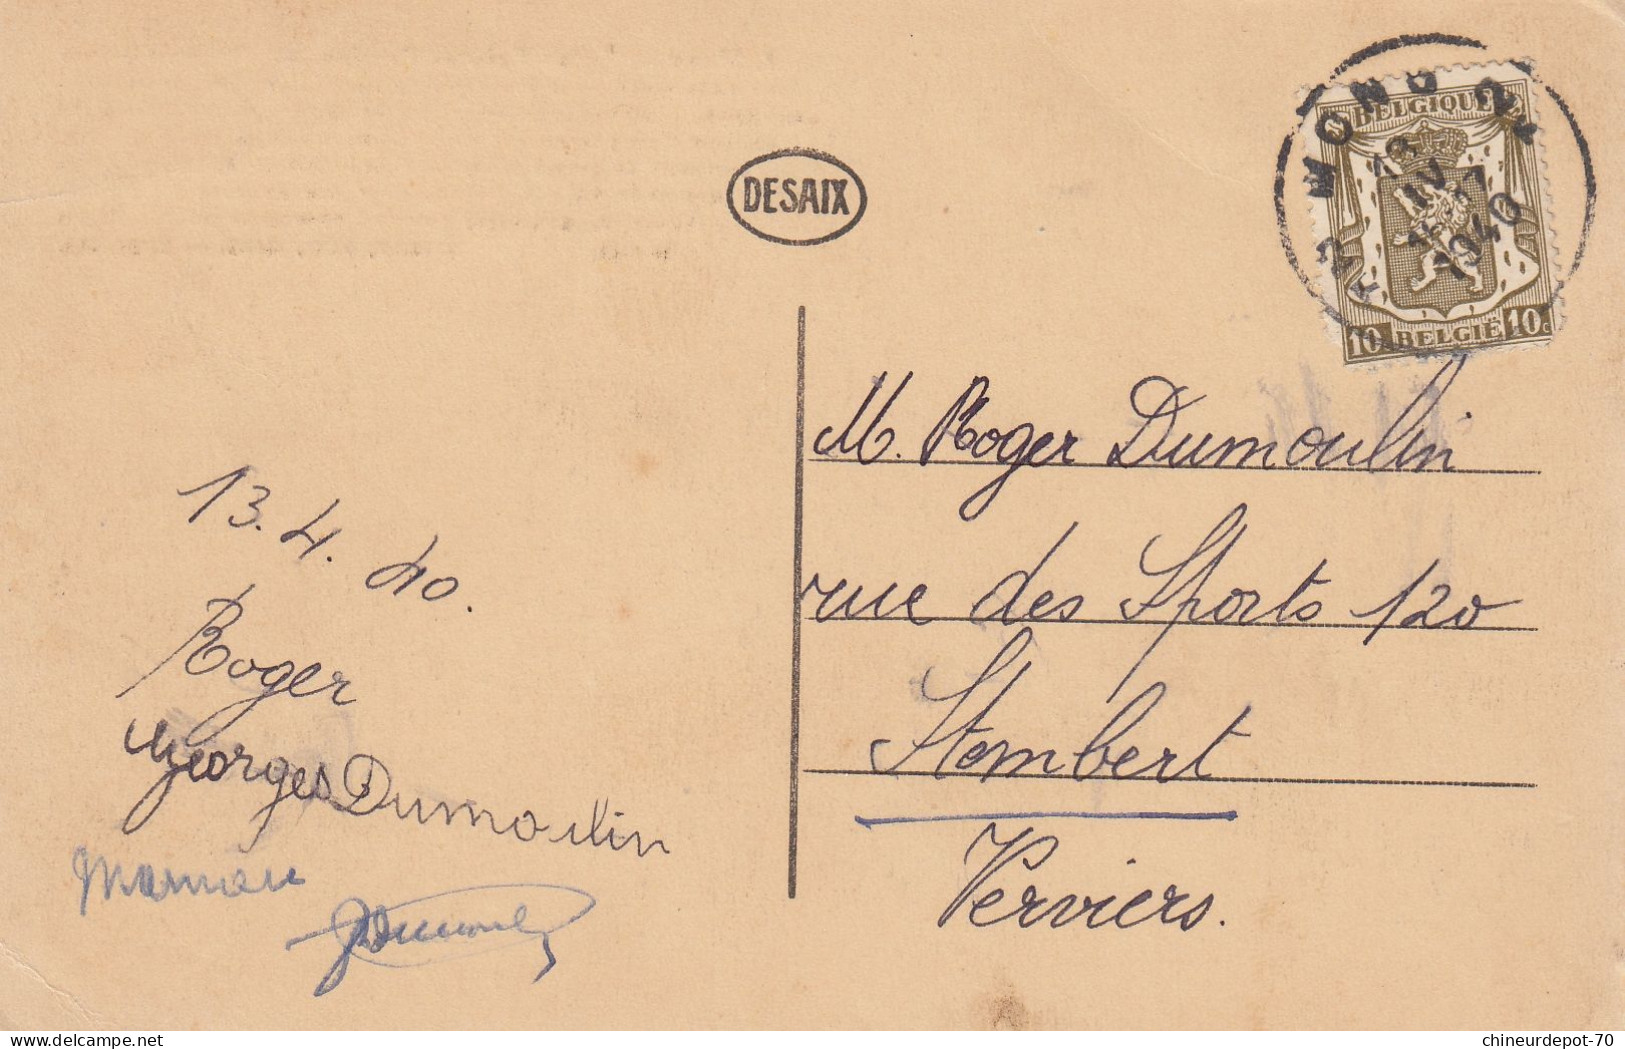 DESAIX
MONS 2
13
IV
1940
BELGIQUE
10 BELGIË 10c
M. Roger Dumoulin
rue des Sports 120
Stembert
Verviers.
13.4.40.
Roger
Georges Dumoulin
Maman
delcampe.net
chineurdepot-70